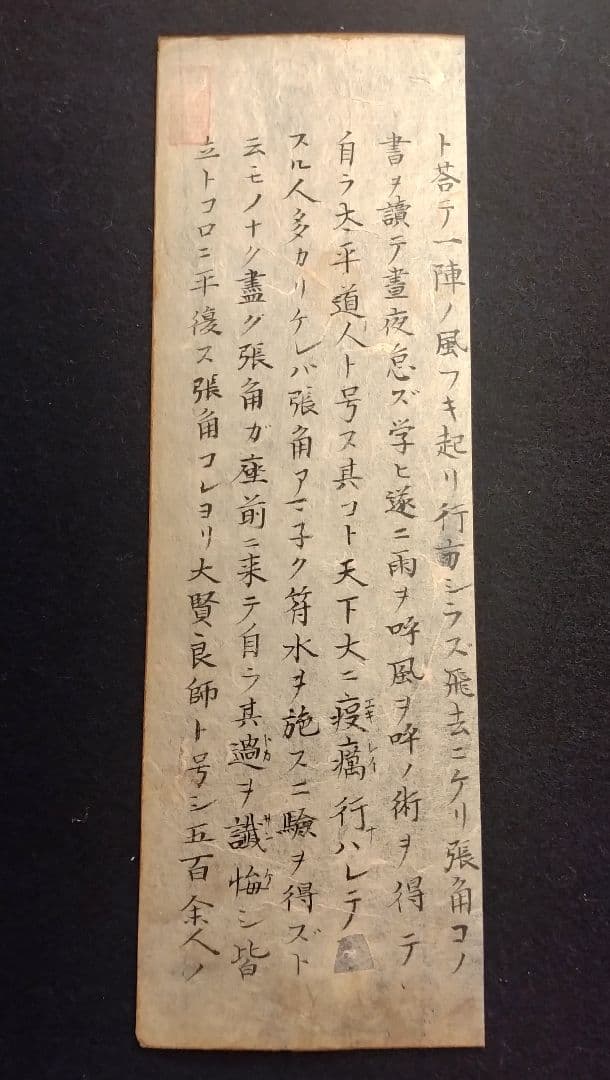 ト荅テ一陣ノ風フキ起リ行方シラズ飛去ニケリ張角コノ
書ヲ讀テ晝夜怠ズ学ヒ遂ニ雨ヲ呼風ヲ呼ノ術ヲ得テ、
自ラ太平道人ト号ス其コト天下大ニ疫癘エキレイ行ナハレテ
スル人多カリケレバ張角アマ子ク符水ヲ施スニ驗ヲ得ズト
云モノナク盡グ張角ガ座前ニ来テ自ラ其過トカヲ讖悔サンケシ皆
立トコロニ平復ス張角コレヨリ大賢良師ト号シ五百余人ノ